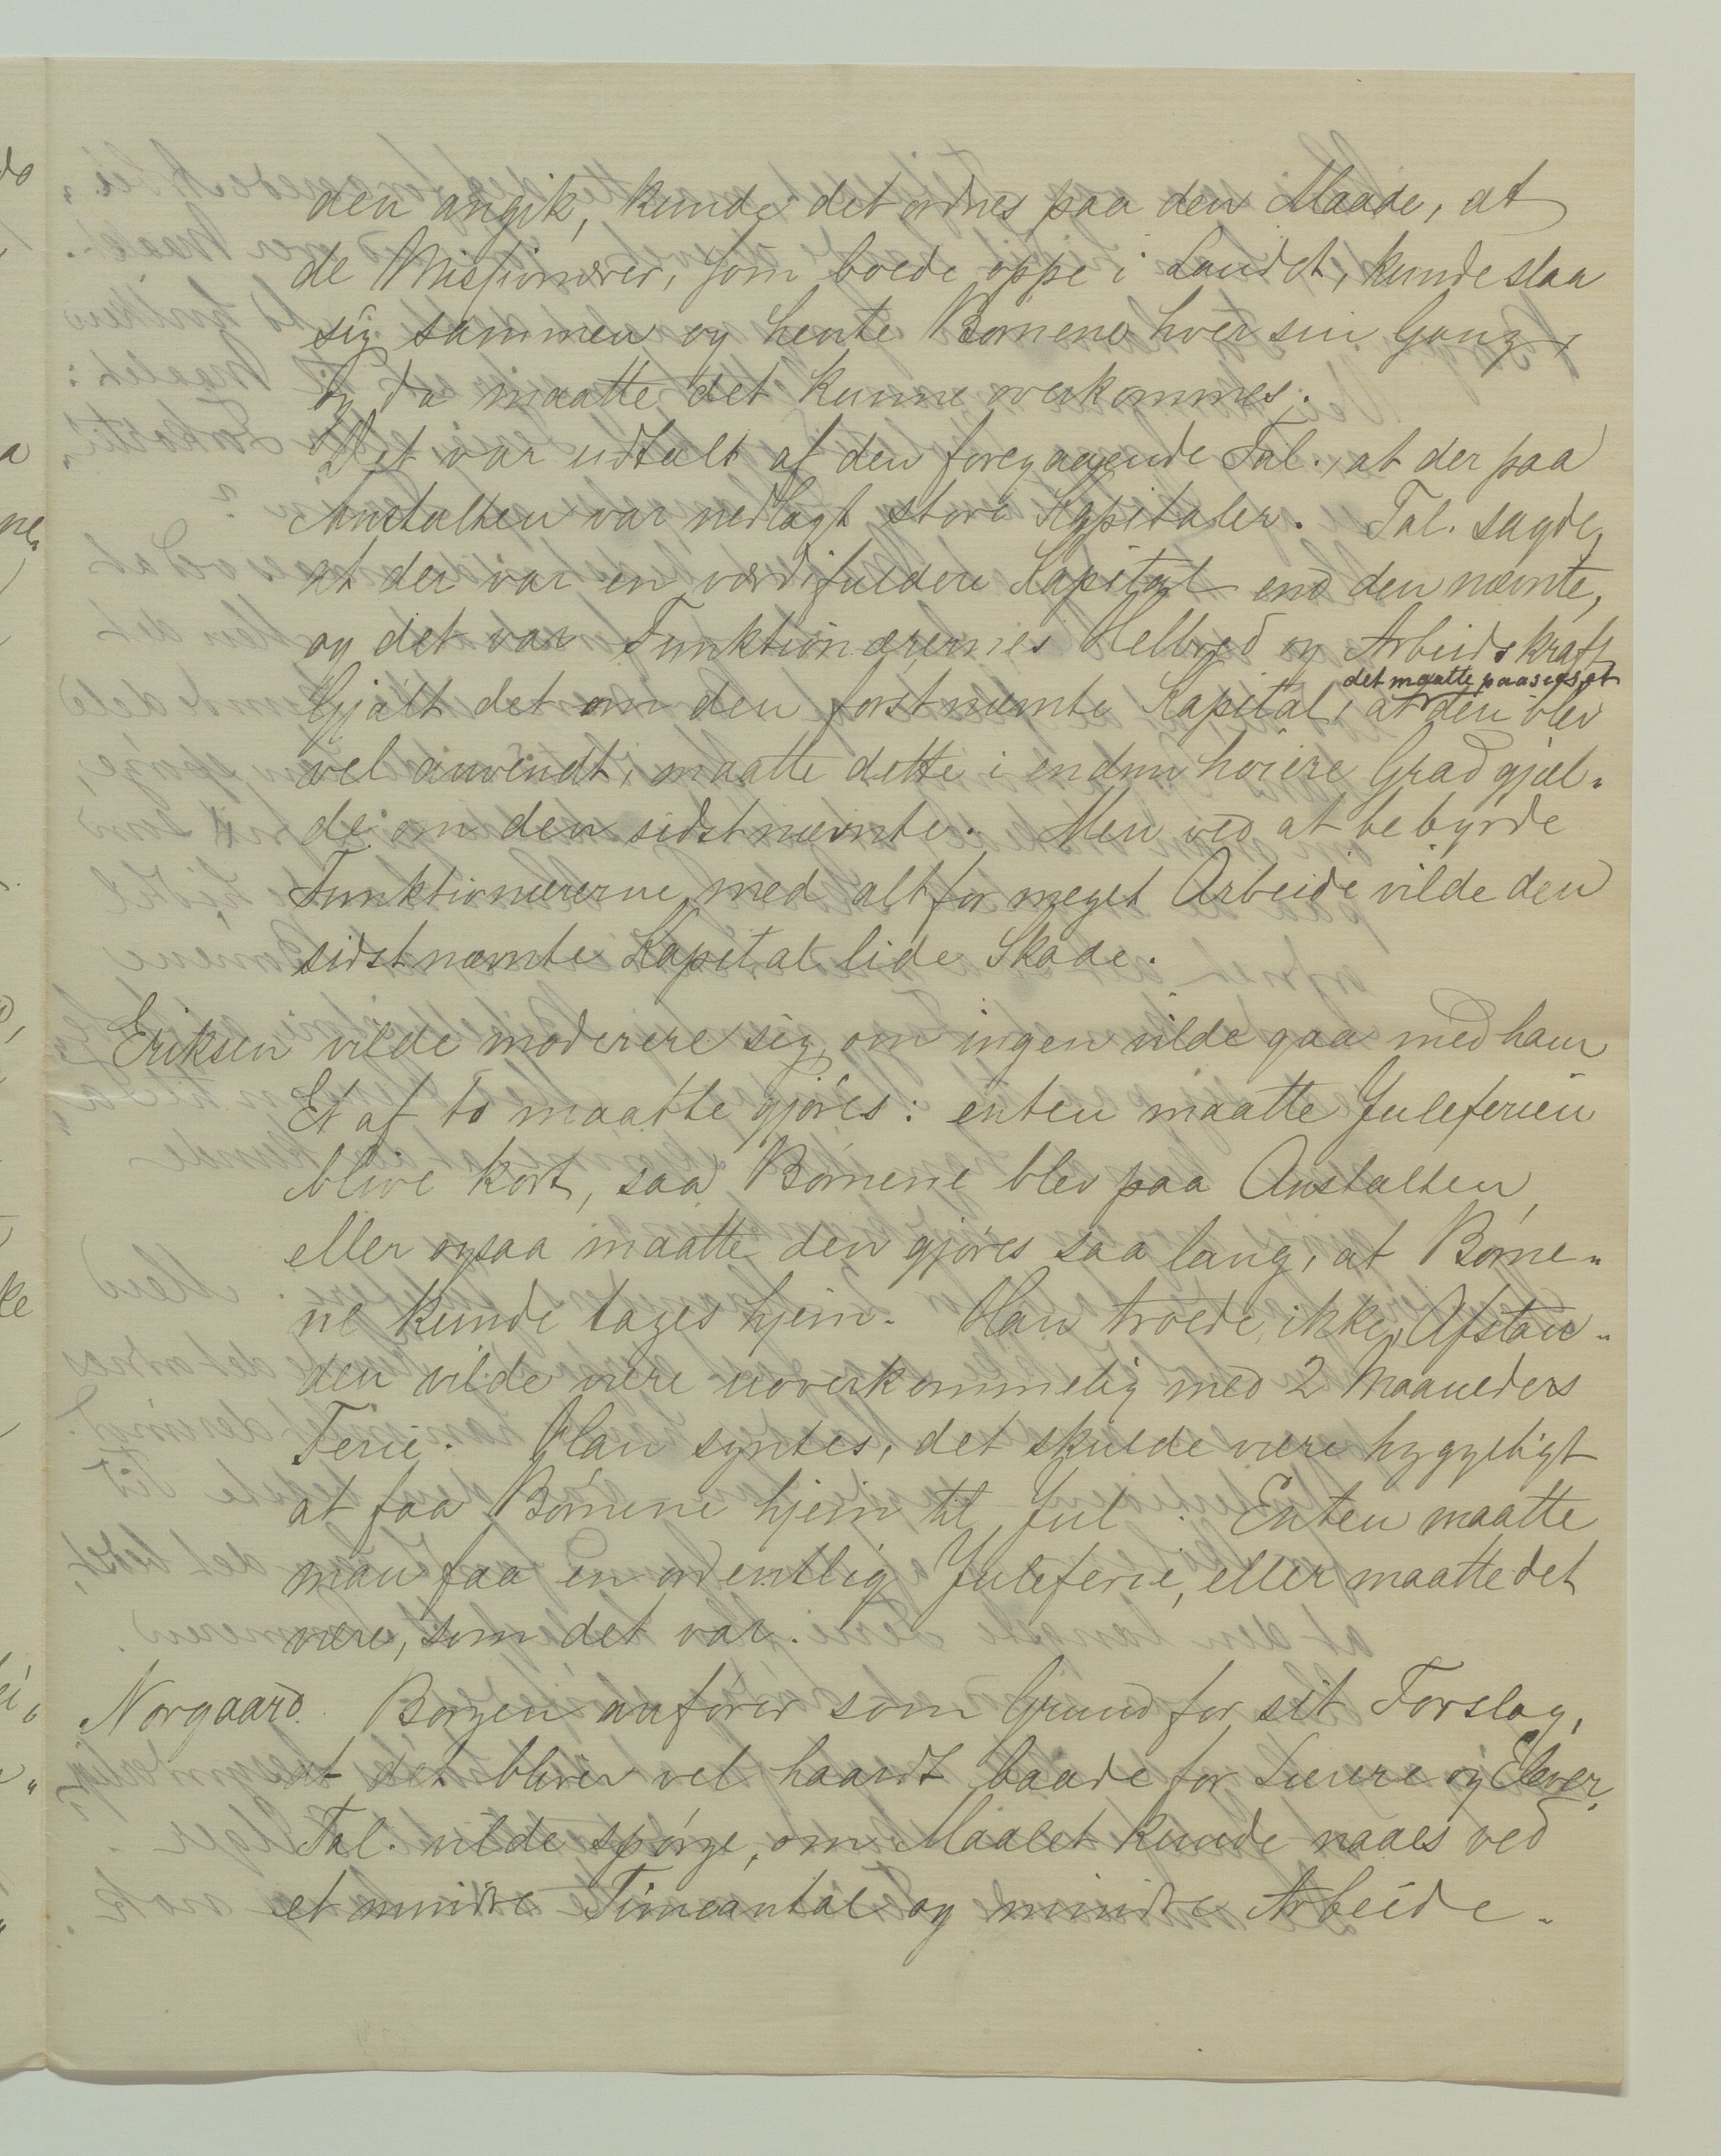 den angik, kunde det ordnes paa den Maade, at
de Missionærer, som boede oppe i Landet, kunde slaa
sig sammen og hente Børnene hver sin Gang,
og da maatte det kunne overkommes.
Det var udtalt af den foregaaende Tal., at der paa
Anstalten var nedlagt store Kapitaler. Tal. sagde,
at der var en værdifuldere Kapital end den nævnte,
og det var Funktionærernes Helbred og Arbeidskraft
det maatte paasees, at
Gjaldt det om den førstnævnte Kapital, at den blev
vel anvendt, maatte dette i endnu høiere Grad gjæl-
de om den sidstnævnte. Men ved at bebyrde
Funktionærerne med altfor meget Arbeide vilde den
sidstnævnte Kapital lide Skade.
Eriksen vilde moderere sig, om ingen vilde gaa med ham
Et af to maatte gjøres: enten maatte Juleferien
blive kort, saa Børnene blev paa Anstalten,
eller ogsaa maatte den gjøres saa lang, at Børne-
ne kunde tages hjem. Han troede ikke, Afstan-
den vilde være uoverkommelig med 2 Maaneders
Ferie. Han syntes, det skulde være hyggeligt
at faa Børnene hjem til Jul. Enten maatte
man faa en ordentlig Juleferie, eller maatte det
være, som det var.
Norgaard. Borgen anfører som Grund for sit Forslag,
at det bliver vel haardt baade for Lærere og Elever.
Tal. vilde spørge, om Maalet kunde naaes ved
et mindre Timeantal og mindre Arbeide.